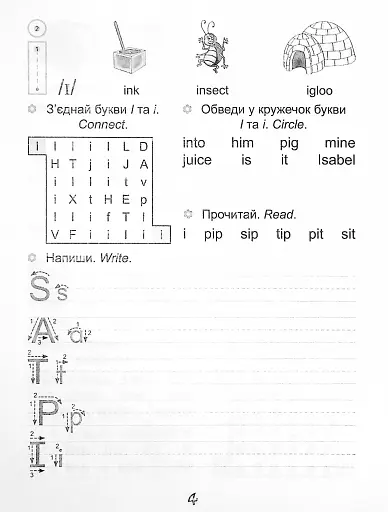 /ɪ/ ink insect igloo
З'єднай букви І та і. Connect.
Обведи у кружечок букви І та і. Circle.
into him pig mine
juice is it Isabel
H T j i J A
i X t H E p
Прочитай. Read.
i pip sip tip pit sit
Напиши. Write.
S s
A a
T t
P p
I i
4